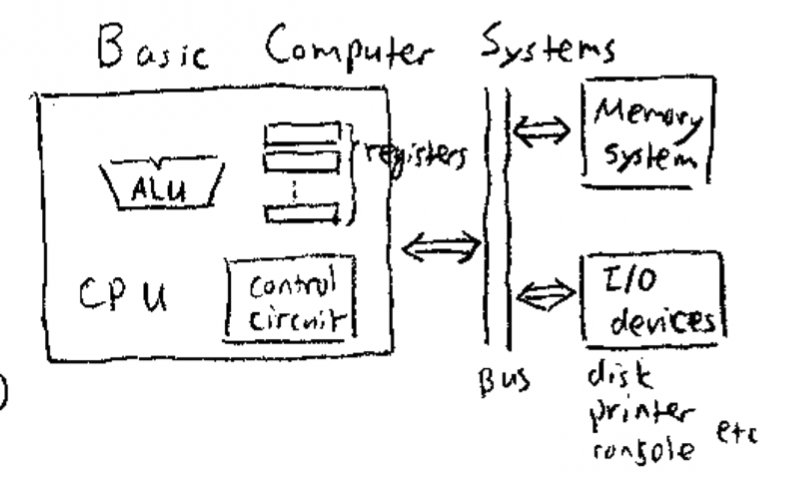 Basic Computer Systems
registers
ALU
CPU
control
circuit
Bus
Memory
system
I/O
devices
disk
printer
console etc